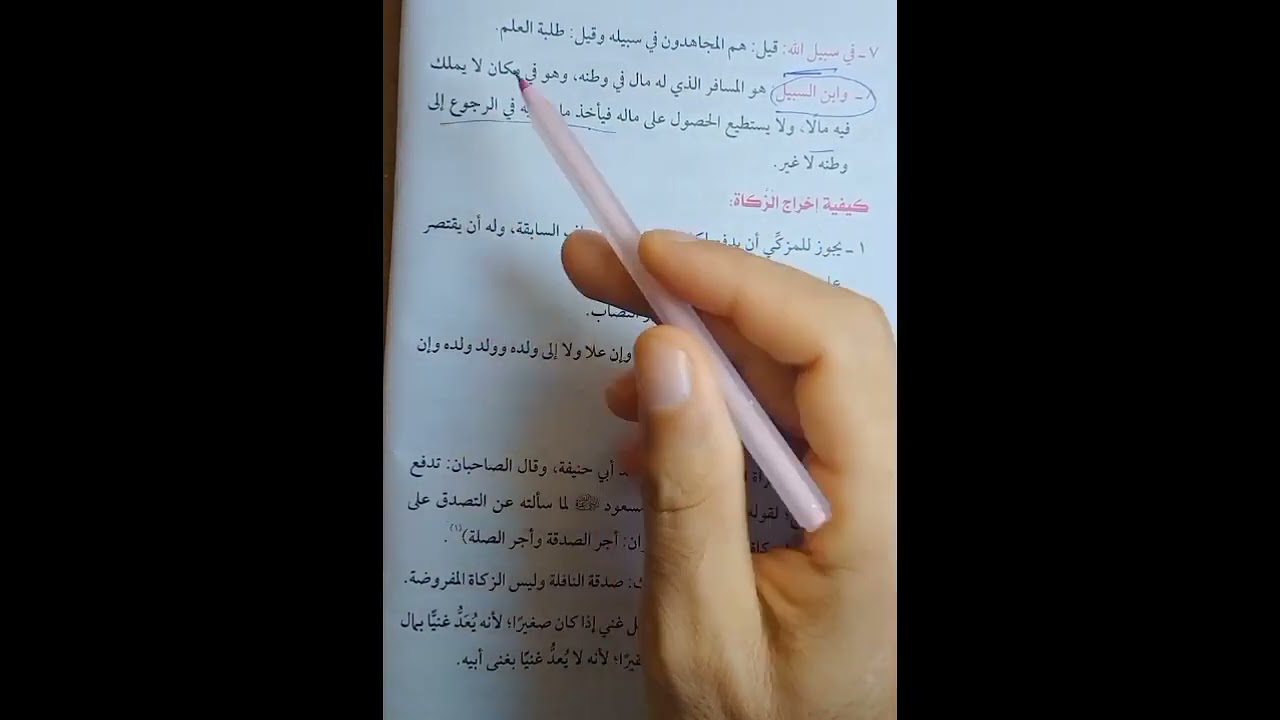 ٧ - في سبيل الله: قيل: هم المجاهدون في سبيله وقيل: طلبة العلم.
٨ - وابن السبيل: هو المسافر الذي له مال في وطنه، وهو في مكان لا يملك
فيه مالًا، ولا يستطيع الحصول على ماله فيأخذ في الرجوع إلى
وطنه لا غير.
كيفية إخراج الزكاة:
١ - يجوز للمزكِّي أن يدفع السابقة، وله أن يقتصر
النصاب.
وإن علا ولا إلى ولده وولد ولده وإن
أبي حنيفة، وقال الصاحبان: تدفع
لقوله لما سألته عن التصدق على
أجر الصدقة وأجر الصلة)(١).
صدقة النافلة وليس الزكاة المفروضة.
غني إذا كان صغيرًا؛ لأنه يُعَدُّ غنيًّا بمال
لأنه لا يُعدُّ غنيًّا بغنى أبيه.